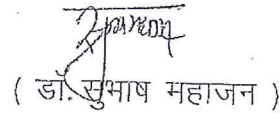 ( डॉ. सुभाष महाजन )